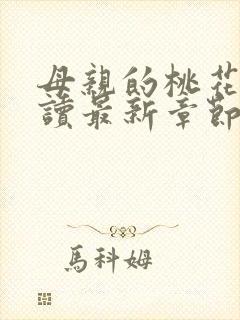 母親的桃花
讀最新章節
馬科姆